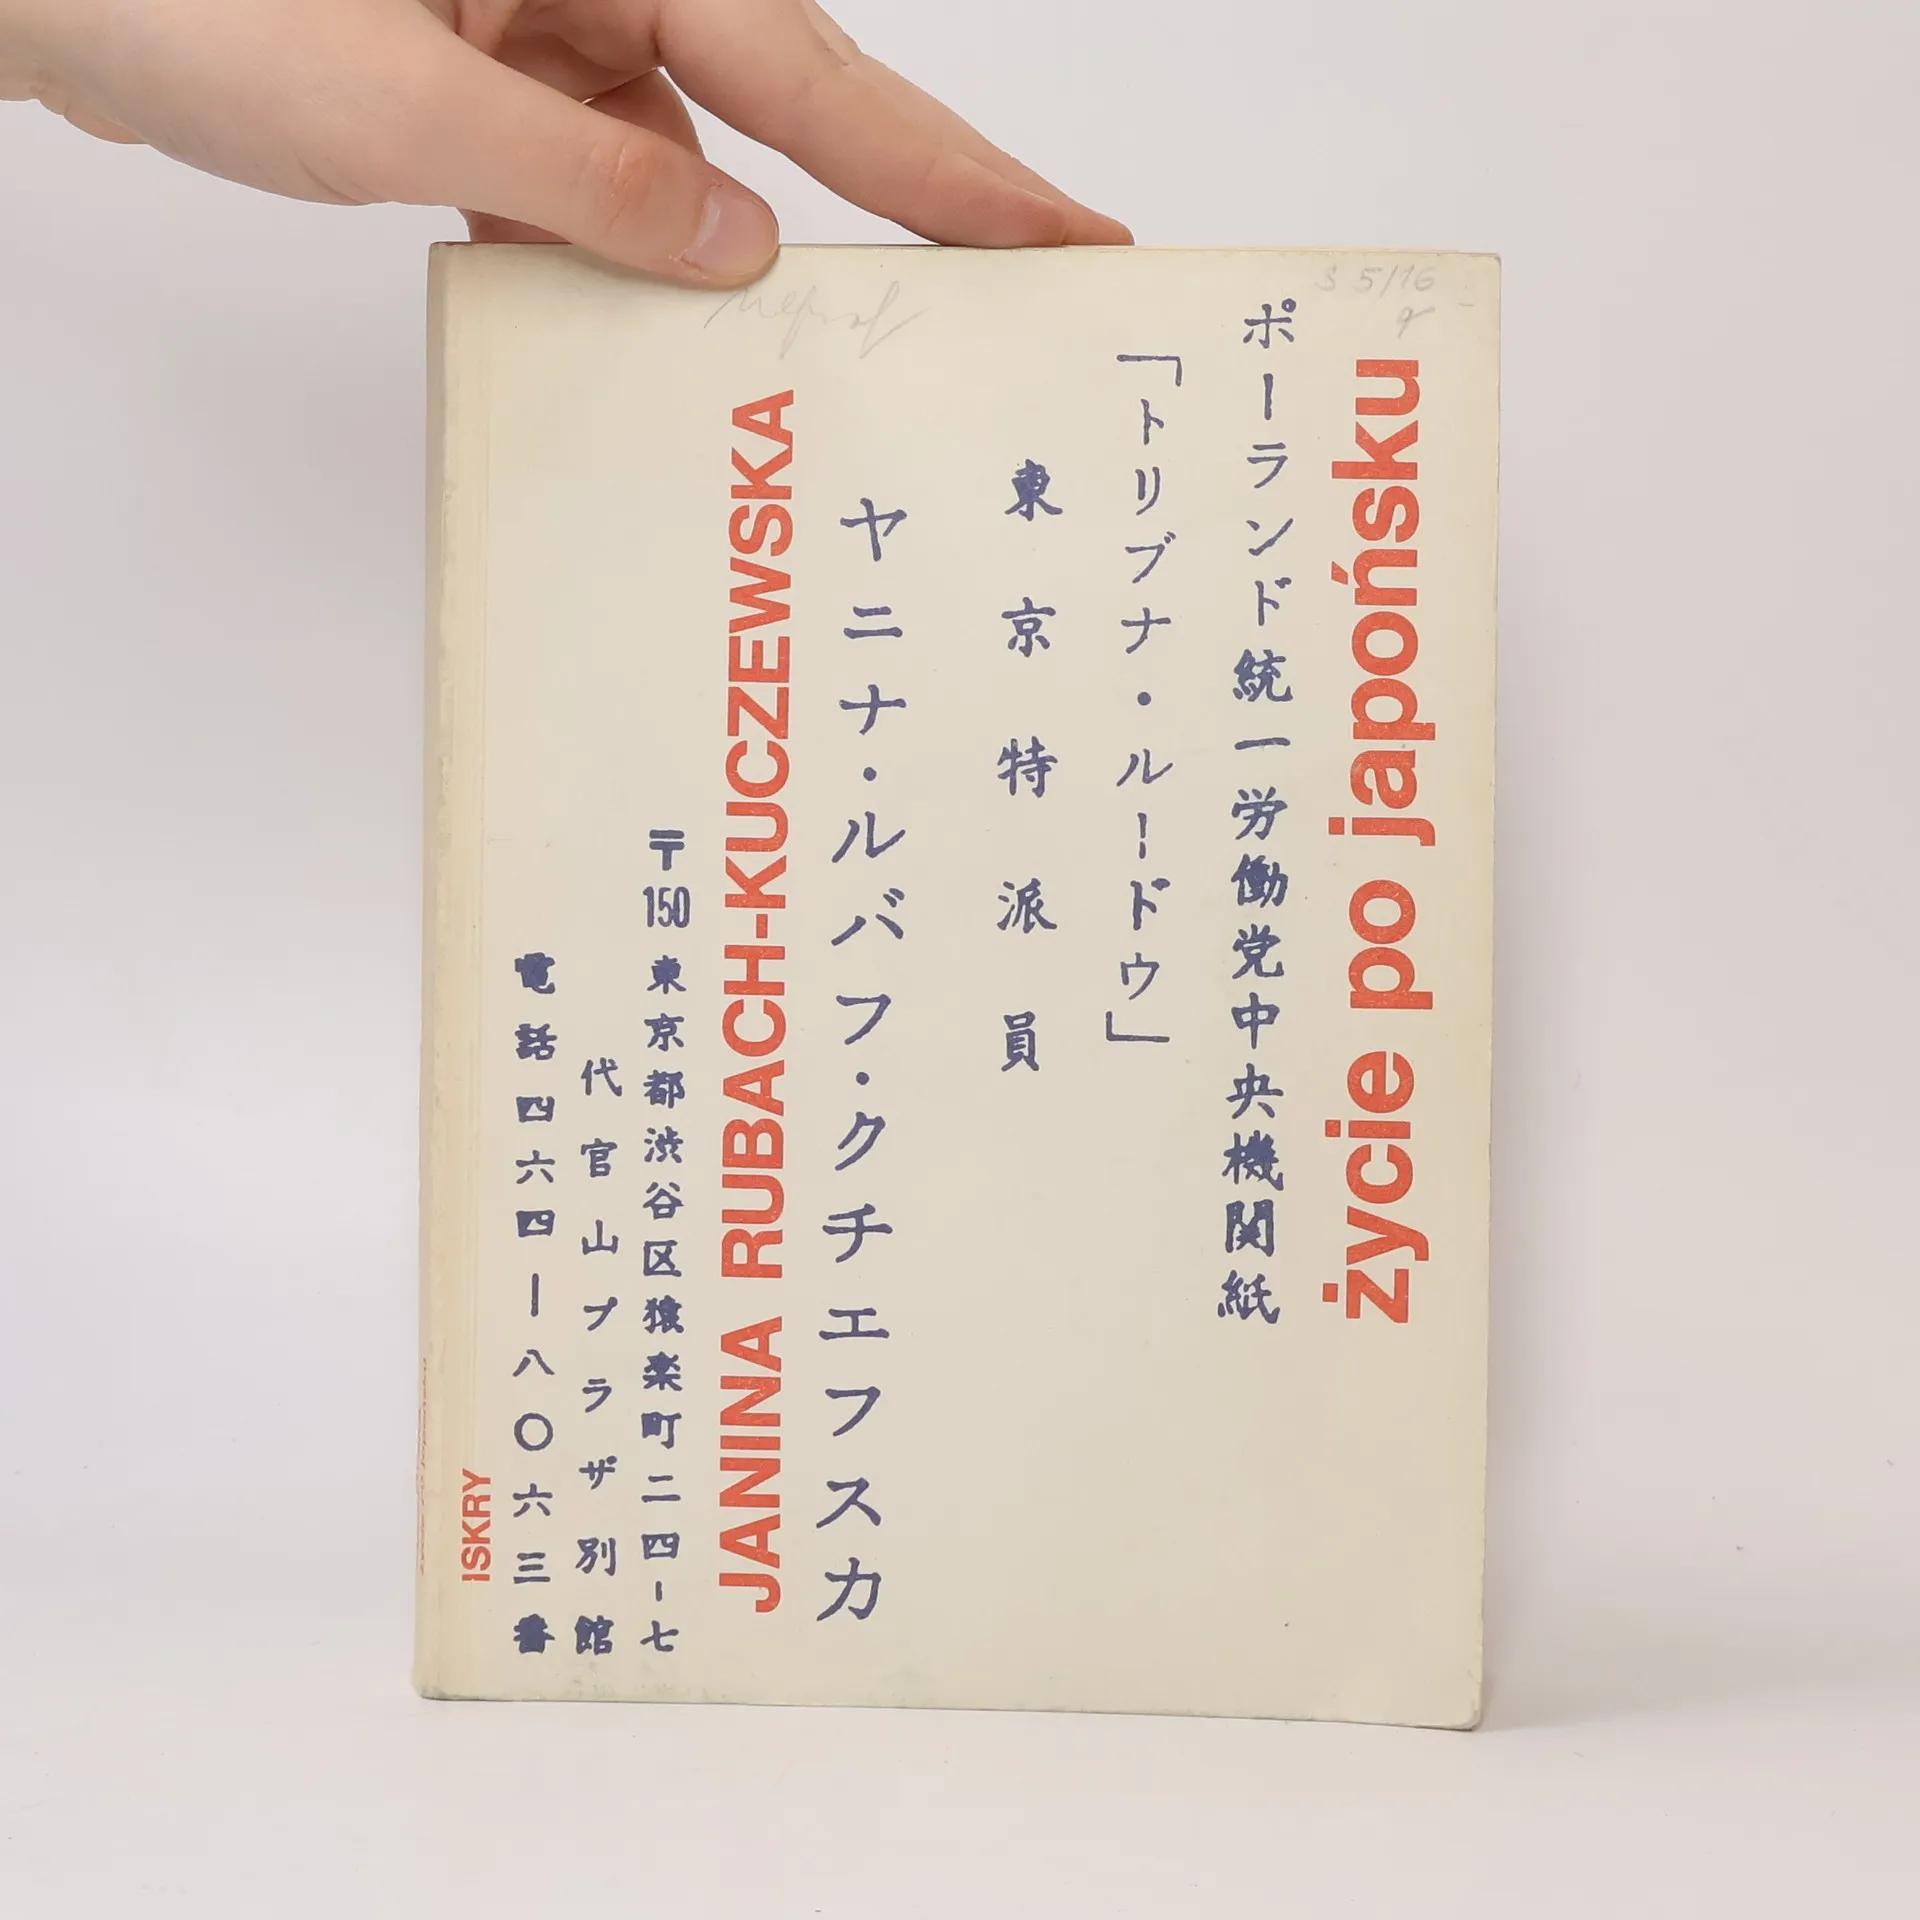 S 5/16
życie po japońsku
ポーランド統一労働党中央機関紙
「トリブナ・ルードウ」
東京特派員
ヤニナ・ルバフ・クチエフスカ
JANINA RUBACH-KUCZEWSKA
〒150 東京都渋谷区猿楽町二四-七
代官山プラザ別館
電話四六四-八〇六三番
ISKRY